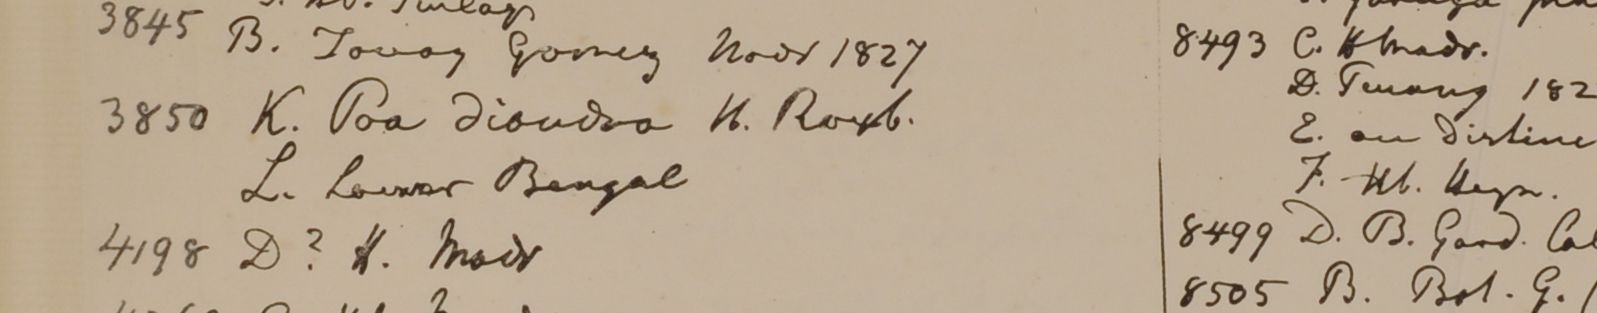 3845
B. Tavoy Gomez Novr 1827
3850 K. Poa diandra H. Roxb.
L. Lower Bengal
4198 D? H. Madr
8493 C. H Madr.
D. Tenang 182
E. au distinc
F. Hb. Heyn.
8499 D. B. Gard. Cal
8505 B. Bot. G. (